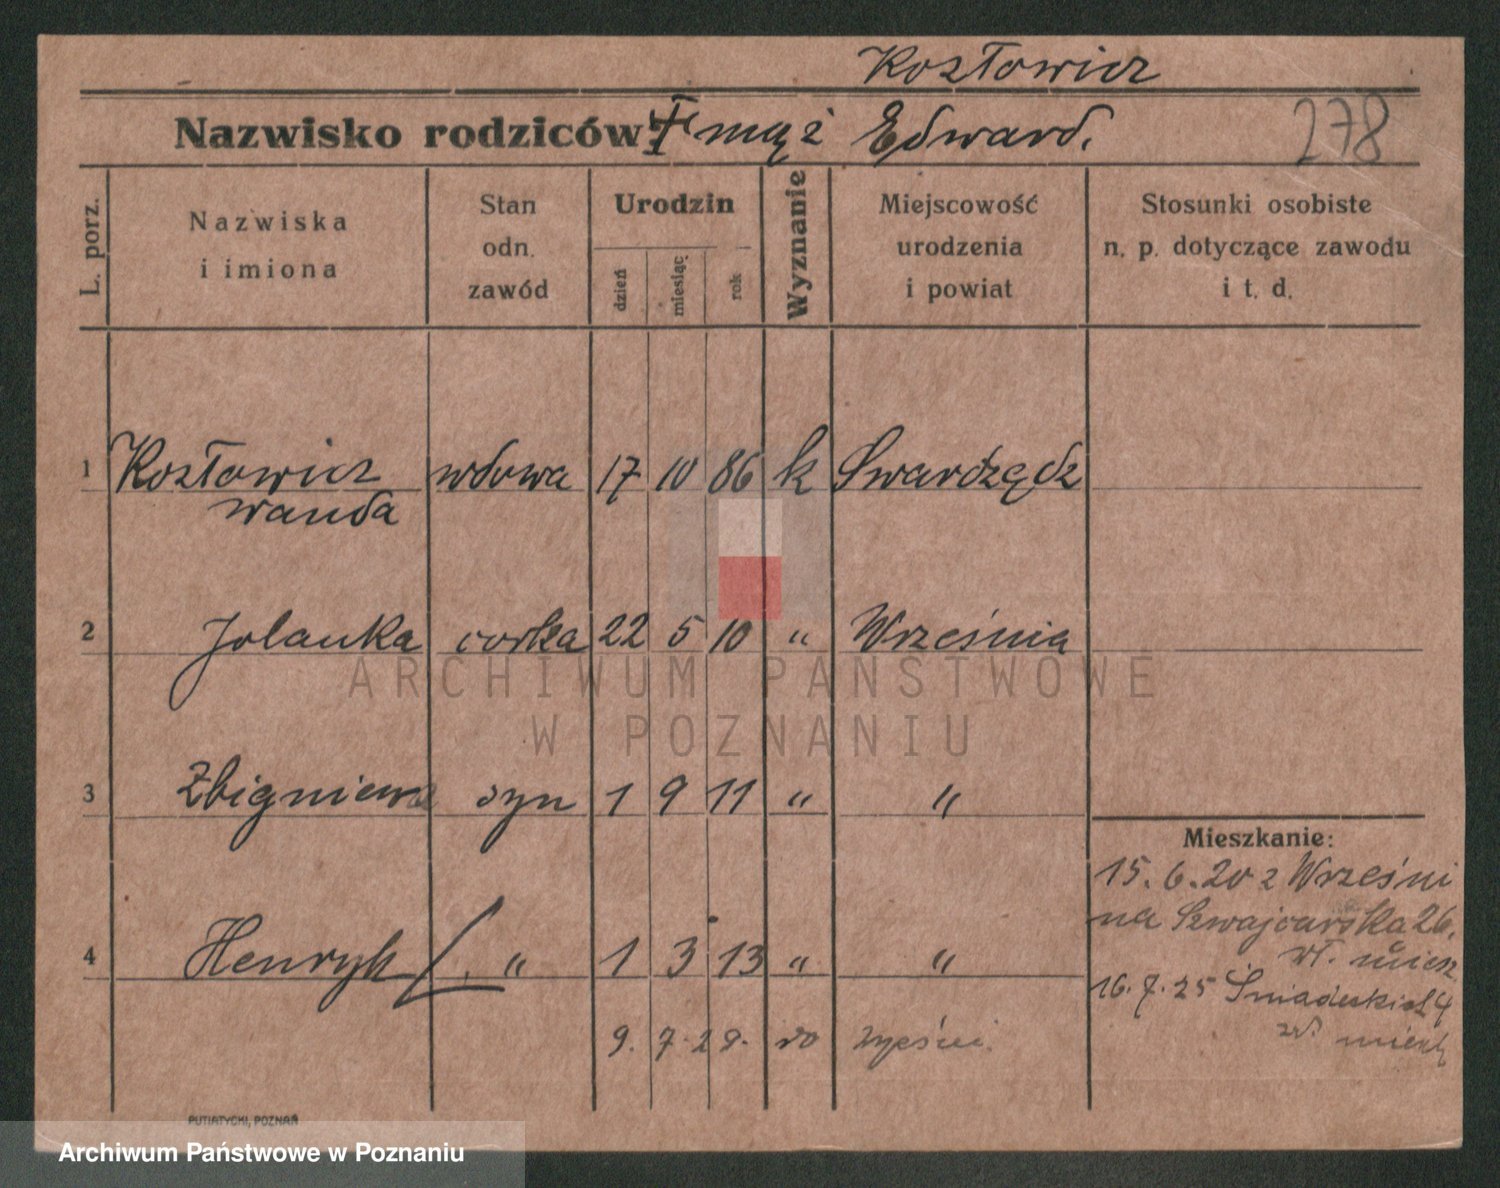 Kozłowicz
Nazwisko rodziców: † mąż Edward.
278
L. porz.
Nazwiska i imiona
Stan odn. zawód
Urodzin
dzień
miesiąc
rok
Wyznanie
Miejscowość urodzenia i powiat
Stosunki osobiste n. p. dotyczące zawodu i t. d.
1 Kozłowicz wdowa 17 10 86 k Swardzędz
Wanda
2 Jolanka corka 22 5 10 " Września
3 Zbigniew syn 1 9 11 " "
Mieszkanie:
15. 6. 20 z Wrześni
na Szwajcarska 26.
wł. miesz
4 Henryk " 1 3 13 " "
16. 7. 25 Śniadeckich 4
9. 7. 29. do
PUTIATYCKI, POZNAŃ
ARCHIWUM PAŃSTWOWE
W POZNANIU
Archiwum Państwowe w Poznaniu